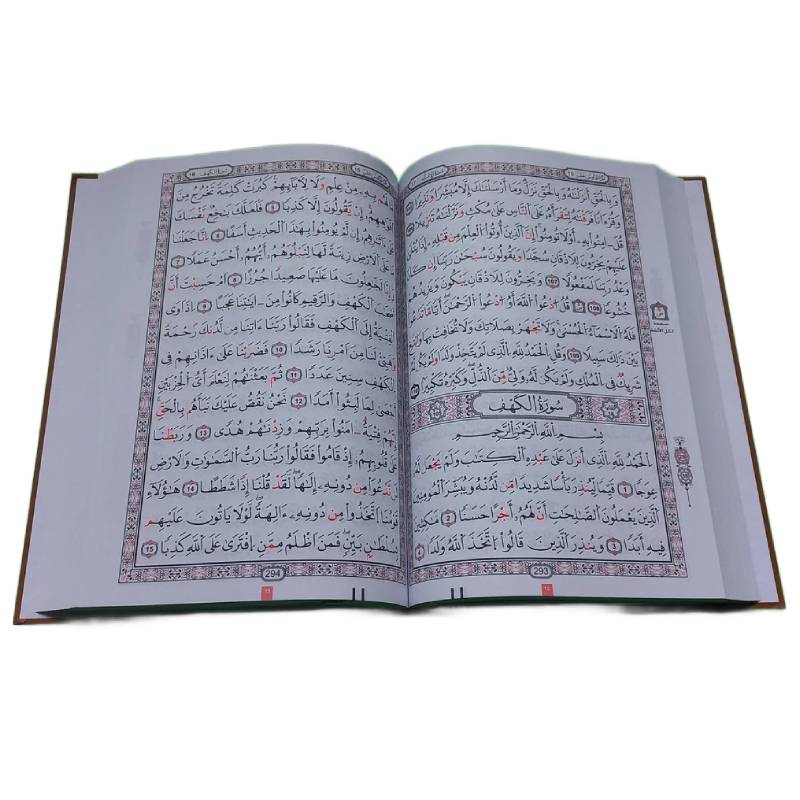 وَبِالْحَقِّ أَنزَلْنَٰهُ وَبِالْحَقِّ نَزَلَ وَمَا أَرْسَلْنَٰكَ إِلَّا مُبَشِّرًا وَنَذِيرًا
وَقُرْءَانًا فَرَقْنَٰهُ لِتَقْرَأَهُ عَلَى النَّاسِ عَلَىٰ مُكْثٍ وَنَزَّلْنَٰهُ تَنزِيلًا
قُلْ ءَامِنُوا بِهِ أَوْ لَا تُؤْمِنُوا إِنَّ الَّذِينَ أُوتُوا الْعِلْمَ مِن قَبْلِهِ إِذَا
عَلَيْهِمْ يَخِرُّونَ لِلْأَذْقَانِ سُجَّدًا وَيَقُولُونَ سُبْحَٰنَ رَبِّنَا إِن كَانَ
وَعْدُ رَبِّنَا لَمَفْعُولًا 107 وَيَخِرُّونَ لِلْأَذْقَانِ يَبْكُونَ وَيَزِيدُهُمْ
خُشُوعًا 108 قُلُ ادْعُوا اللَّهَ أَوُ ادْعُوا الرَّحْمَٰنَ أَيًّا مَّا تَدْعُوا
فَلَهُ الْأَسْمَاءُ الْحُسْنَىٰ وَلَا تَجْهَرْ بِصَلَاتِكَ وَلَا تُخَافِتْ بِهَا وَابْتَغِ
بَيْنَ ذَٰلِكَ سَبِيلًا 109 وَقُلِ الْحَمْدُ لِلَّهِ الَّذِي لَمْ يَتَّخِذْ وَلَدًا وَلَمْ يَكُن لَّهُ
شَرِيكٌ فِي الْمُلْكِ وَلَمْ يَكُن لَّهُ وَلِيٌّ مِّنَ الذُّلِّ وَكَبِّرْهُ تَكْبِيرًا
سُورَةُ الْكَهْفِ
بِسْمِ اللَّهِ الرَّحْمَٰنِ الرَّحِيمِ
الْحَمْدُ لِلَّهِ الَّذِي أَنزَلَ عَلَىٰ عَبْدِهِ الْكِتَٰبَ وَلَمْ يَجْعَل لَّهُ
عِوَجًا 1 قَيِّمًا لِّيُنذِرَ بَأْسًا شَدِيدًا مِّن لَّدُنْهُ وَيُبَشِّرَ الْمُومِنِينَ
الَّذِينَ يَعْمَلُونَ الصَّٰلِحَٰتِ أَنَّ لَهُمْ أَجْرًا حَسَنًا 2 مَّٰكِثِينَ
فِيهِ أَبَدًا 3 وَيُنذِرَ الَّذِينَ قَالُوا اتَّخَذَ اللَّهُ وَلَدًا 4
293
مَّا لَهُم بِهِ مِنْ عِلْمٍ وَلَا لِأَبَائِهِمْ كَبُرَتْ كَلِمَةً تَخْرُجُ مِنْ
أَفْوَٰهِهِمْ إِن يَقُولُونَ إِلَّا كَذِبًا 5 فَلَعَلَّكَ بَٰخِعٌ نَّفْسَكَ
عَلَىٰ ءَاثَٰرِهِمْ إِن لَّمْ يُومِنُوا بِهَٰذَا الْحَدِيثِ أَسَفًا 6 إِنَّا جَعَلْنَا
مَا عَلَى الْأَرْضِ زِينَةً لَّهَا لِنَبْلُوَهُمْ أَيُّهُمْ أَحْسَنُ عَمَلًا 7
وَإِنَّا لَجَٰعِلُونَ مَا عَلَيْهَا صَعِيدًا جُرُزًا 8 أَمْ حَسِبْتَ أَنَّ
أَصْحَٰبَ الْكَهْفِ وَالرَّقِيمِ كَانُوا مِنْ ءَايَٰتِنَا عَجَبًا 9 إِذْ أَوَى
الْفِتْيَةُ إِلَى الْكَهْفِ فَقَالُوا رَبَّنَا ءَاتِنَا مِن لَّدُنكَ رَحْمَةً
وَهَيِّئْ لَنَا مِنْ أَمْرِنَا رَشَدًا 10 فَضَرَبْنَا عَلَىٰ ءَاذَانِهِمْ فِي
الْكَهْفِ سِنِينَ عَدَدًا 11 ثُمَّ بَعَثْنَٰهُمْ لِنَعْلَمَ أَيُّ الْحِزْبَيْنِ
أَحْصَىٰ لِمَا لَبِثُوا أَمَدًا 12 نَّحْنُ نَقُصُّ عَلَيْكَ نَبَأَهُم بِالْحَقِّ
إِنَّهُمْ فِتْيَةٌ ءَامَنُوا بِرَبِّهِمْ وَزِدْنَٰهُمْ هُدًى 13 وَرَبَطْنَا
عَلَىٰ قُلُوبِهِمْ إِذْ قَامُوا فَقَالُوا رَبُّنَا رَبُّ السَّمَٰوَٰتِ وَالْأَرْضِ
لَن نَّدْعُوَا مِن دُونِهِ إِلَٰهًا لَّقَدْ قُلْنَا إِذًا شَطَطًا 14 هَٰؤُلَاءِ
قَوْمُنَا اتَّخَذُوا مِن دُونِهِ ءَالِهَةً لَّوْلَا يَاتُونَ عَلَيْهِم
بِسُلْطَٰنٍ بَيِّنٍ فَمَنْ أَظْلَمُ مِمَّنِ افْتَرَىٰ عَلَى اللَّهِ كَذِبًا 15
294